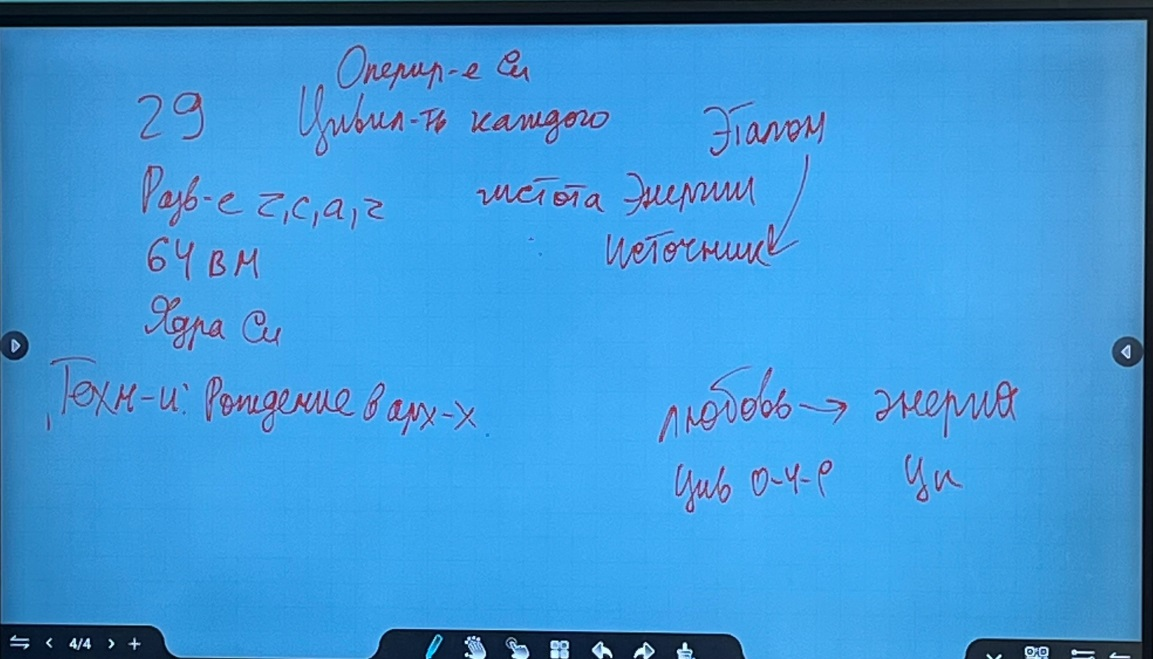 Оперир-е Си
29 Цивил-ть каждого Эталон
Разв-е г, с, а, г чистота Энергии
64 ВМ Источник
Ядра Си
Техн-и: Рождение в арх-х
любовь → энергия
Цив 0-4-Р Ци
4/4